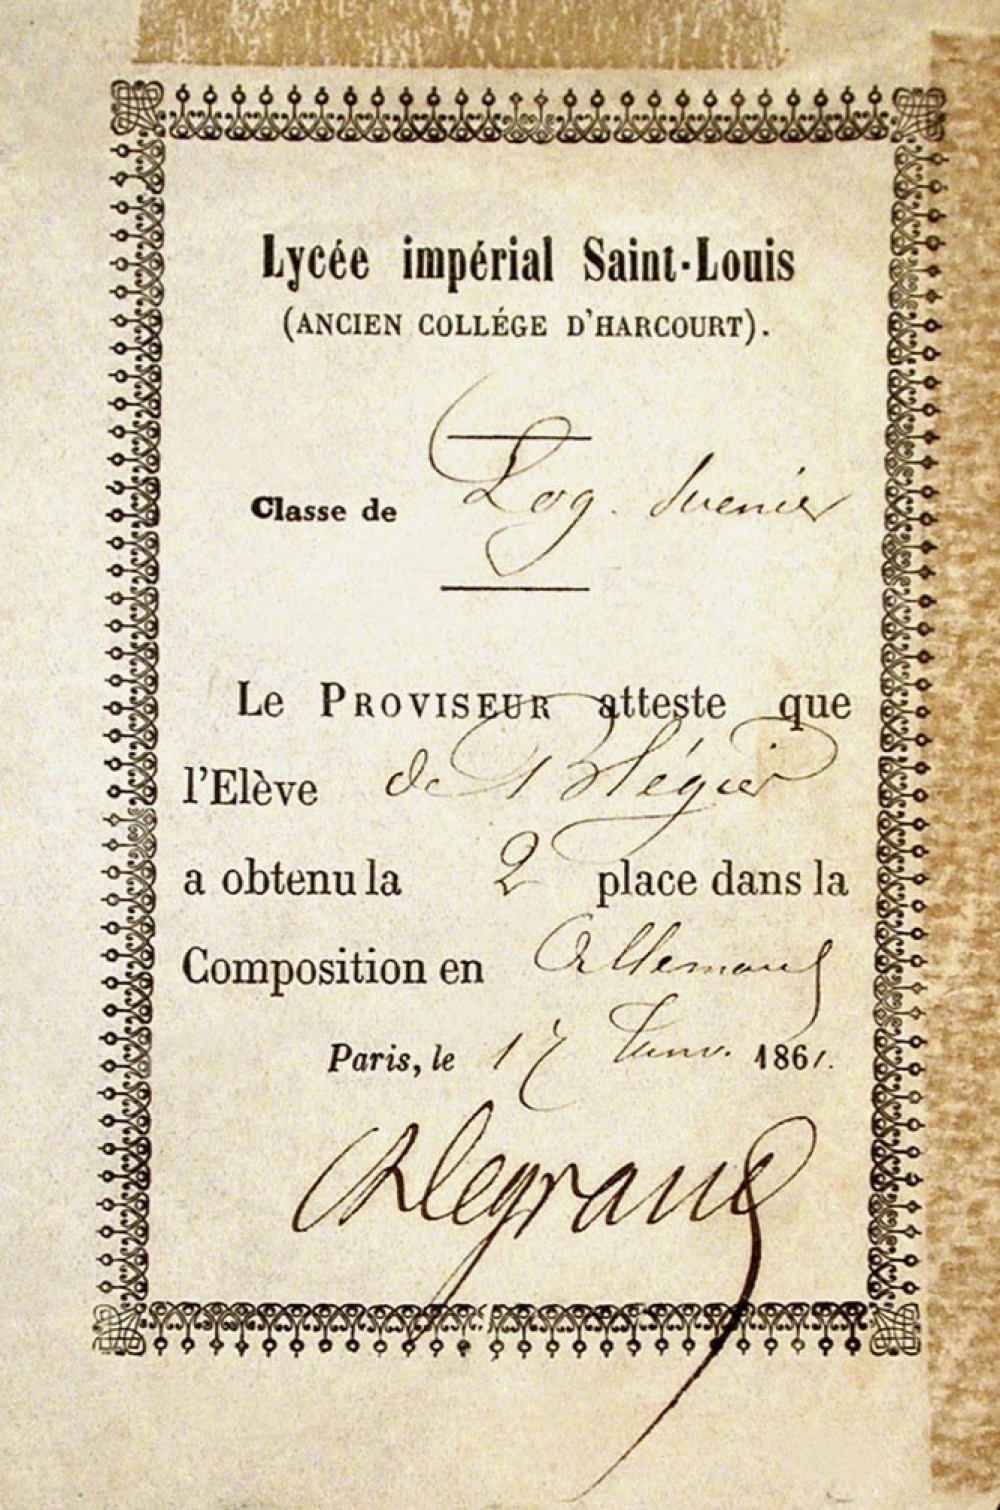 Lycée impérial Saint-Louis
(ANCIEN COLLÉGE D'HARCOURT).
Classe de Log.
Le PROVISEUR atteste que
l'Elève de Blégier
a obtenu la 2 place dans la
Composition en Allemand
Paris, le 17 Janv. 1861.